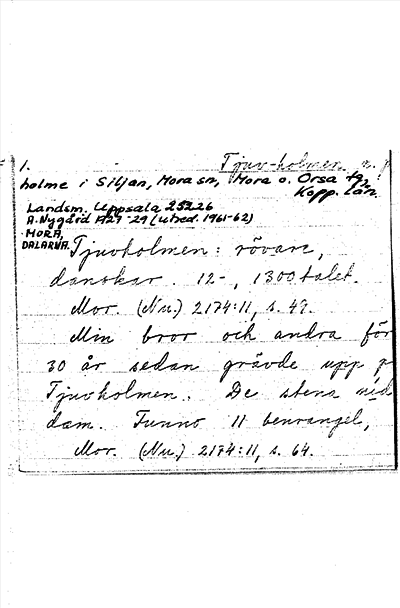 1. Tjuv-holmen, n. p
holme i Siljan, Mora sn, Mora o. Orsa tg,
Kopp. län.
Landsm. Uppsala 25226
A. Nygård 1927-29 (utred. 1961-62)
MORA,
DALARNA. Tjuvholmen: rövare,
danskar. 12-, 1300 talet.
Mor. (Nu.) 2174:11, s. 49.
Min bror och andra för
30 år sedan grävde upp p
Tjuvholmen. De stens nid
dam. Funno 11 benrangel,
Mor. (Nu.) 2174:11, s. 64.